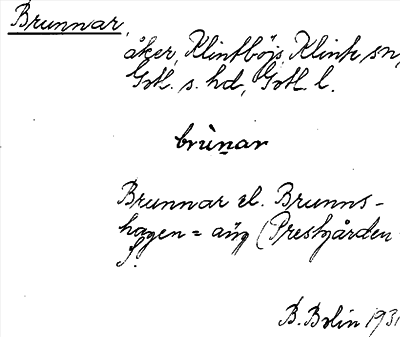 Brunnar,
åker, Klintböjs Klinte sn,
Gotl. s. hd, Gotl. l.
brùnar
Brunnar el. Brunns-
hagen = äng (Prestgården
f.
B. Bolin 1931